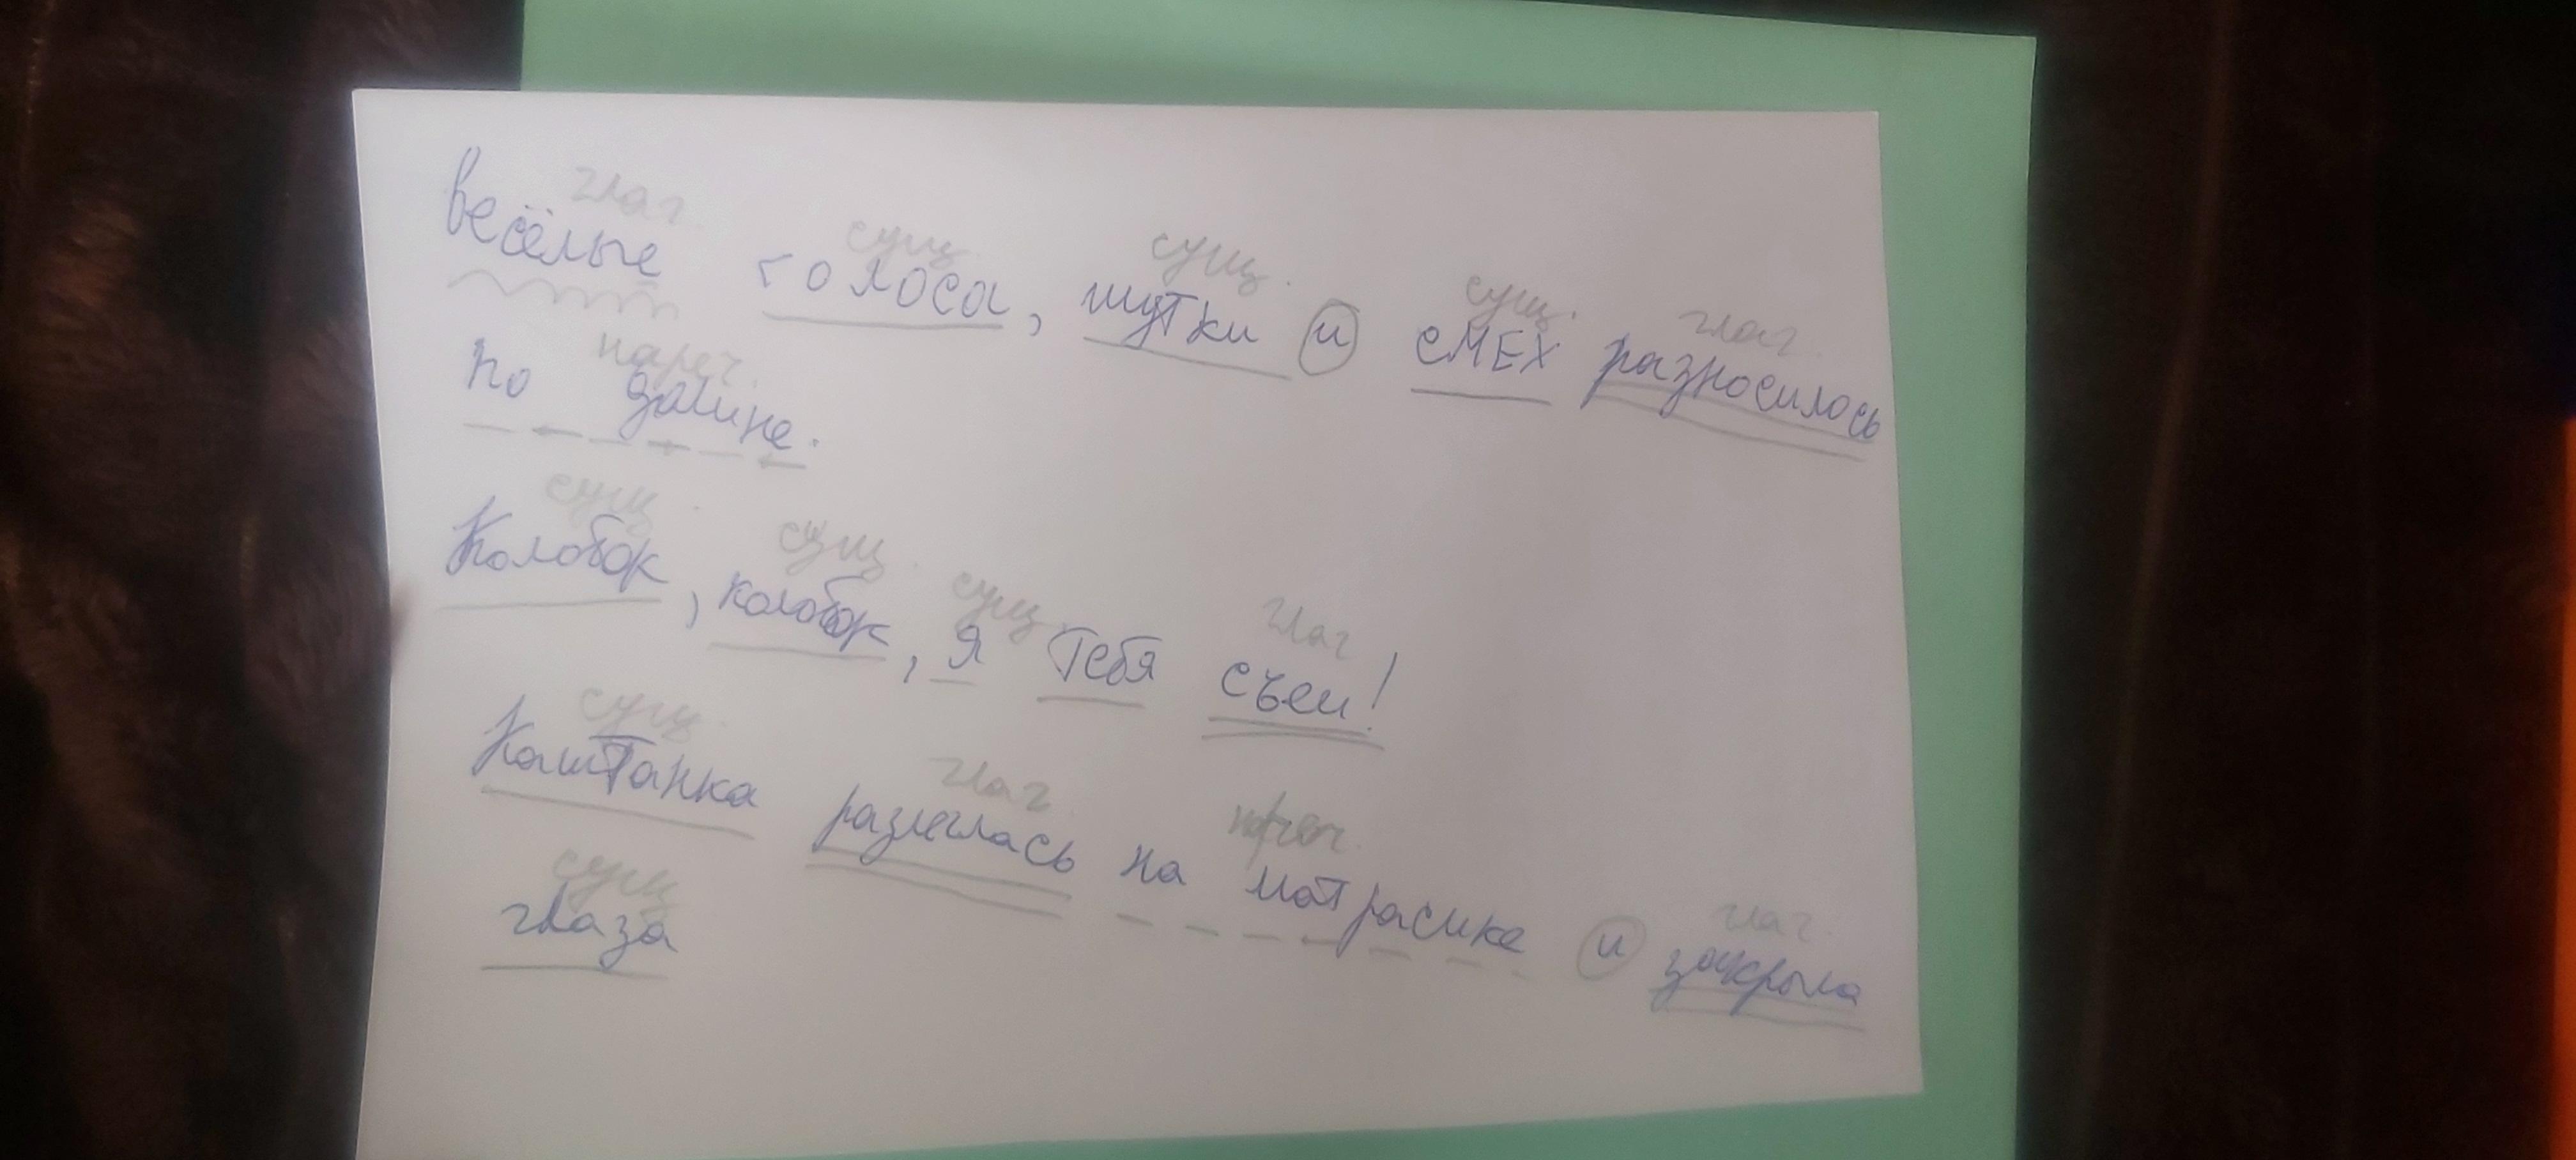 глаг сущ. сущ. сущ. глаг.
весёлые голоса, шутки и смех разносилось
нареч.
по долине.
сущ. сущ. сущ. глаг
Колобок, колобок, я тебя съем!
сущ. глаг. нареч. глаг.
Каштанка разлеглась на матрасике и закрыла
сущ
глаза